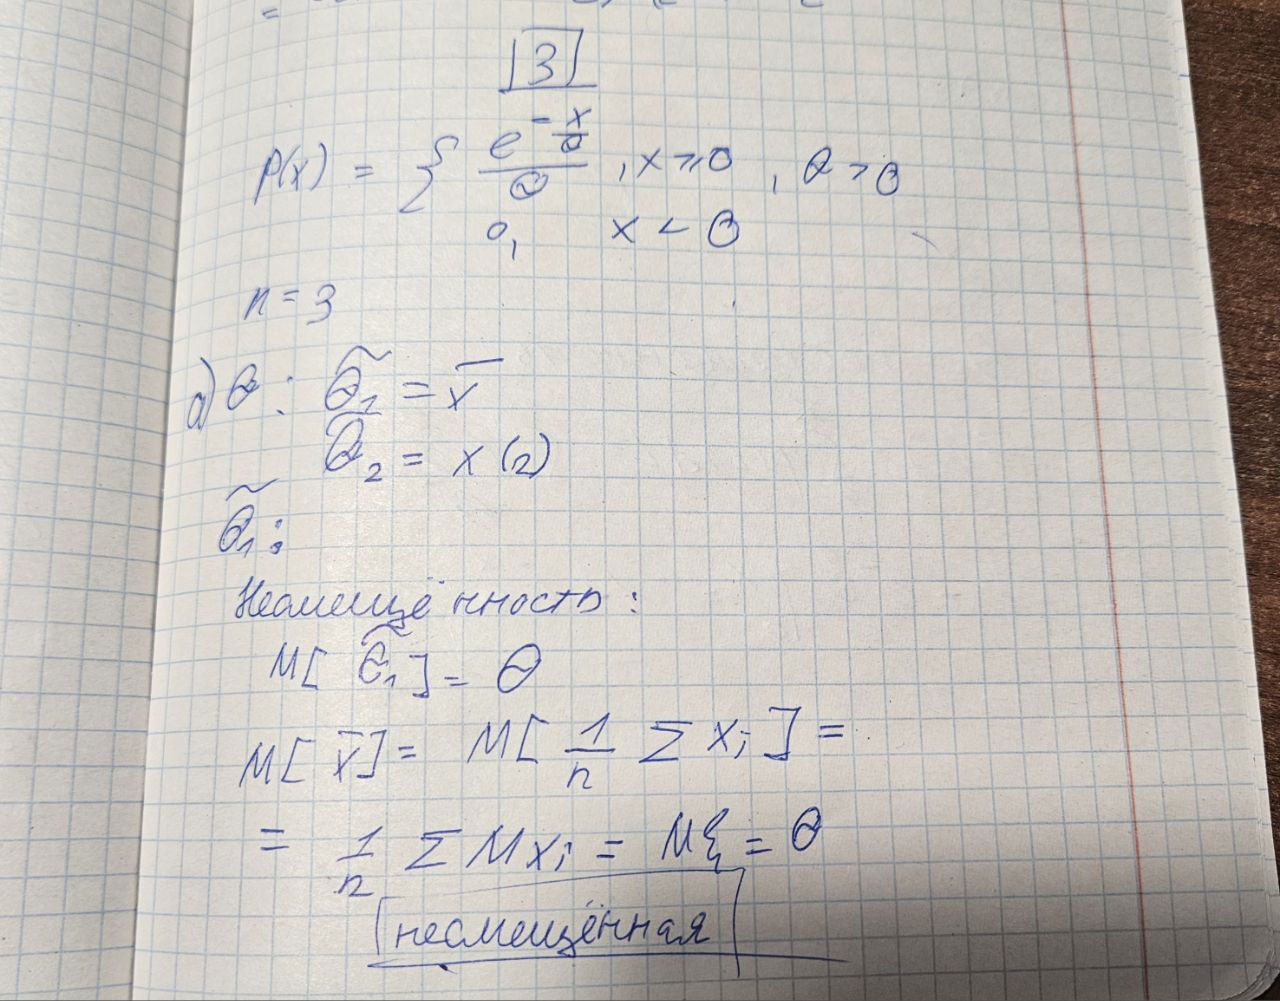 3
p(x) = { e^(-x/θ)/θ, x ≥ 0, θ > 0
0, x < 0
n = 3
а) θ: θ̃₁ = x̅
θ̃₂ = x(2)
θ̃₁:
Несмещённость:
M[θ̃₁] = θ
M[x̅] = M[1/n Σ xᵢ] =
= 1/n Σ M xᵢ = Mξ = θ
несмещённая